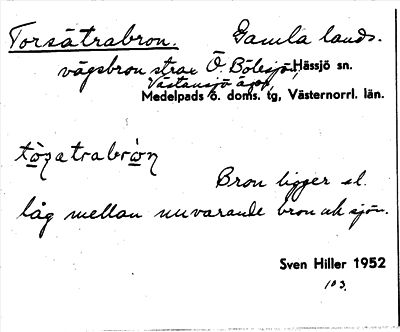 Torsåtrabron. Gamla lands-
vägsbron strax Ö. Bölesjön, Hässjö sn.
Västansjö ägor,
Medelpads ö. doms. tg, Västernorrl. län.
tò̱ṣatrabrò̱n
Bron ligger el.
låg mellan nuvarande bron och sjön.
Sven Hiller 1952
103.